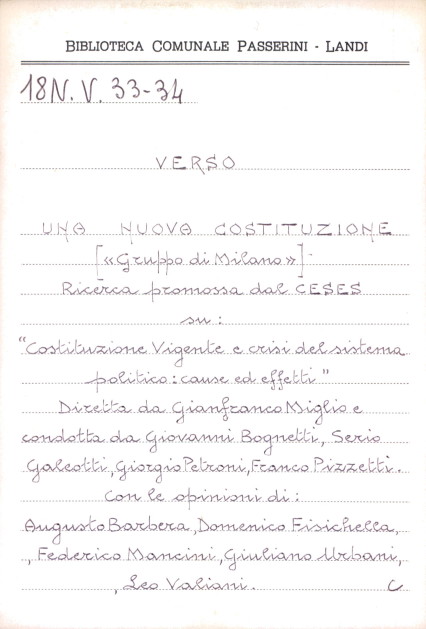 BIBLIOTECA COMUNALE PASSERINI - LANDI
18N. V. 33-34
VERSO
UNA NUOVA COSTITUZIONE
[«Gruppo di Milano»]
Ricerca promossa dal CESES
su:
"Costituzione Vigente e crisi del sistema
politico: cause ed effetti"
Diretta da Gianfranco Miglio e
condotta da Giovanni Bognetti, Serio
Galeotti, Giorgio Petroni, Franco Pizzetti.
Con le opinioni di:
Augusto Barbera, Domenico Fisichella,
, Federico Mancini, Giuliano Urbani,
, Leo Valiani. C